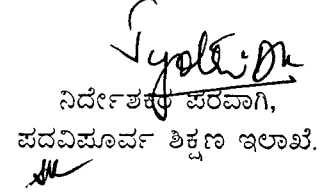 Jyothi
ನಿರ್ದೇಶಕರ ಪರವಾಗಿ,
ಪದವಿಪೂರ್ವ ಶಿಕ್ಷಣ ಇಲಾಖೆ.